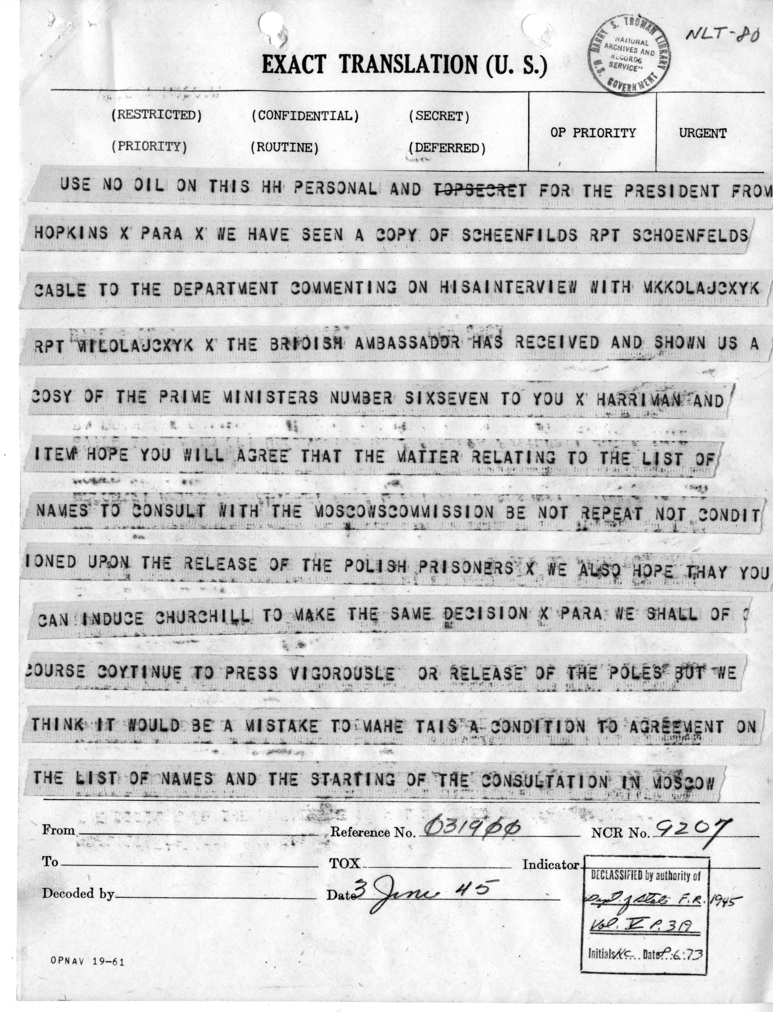 NLT-80
HARRY S. TRUMAN LIBRARY
"NATIONAL
ARCHIVES AND
RECORDS
SERVICE"
U.S. GOVERNMENT
EXACT TRANSLATION (U. S.)
(RESTRICTED) (CONFIDENTIAL) (SECRET)
OP PRIORITY URGENT
(PRIORITY) (ROUTINE) (DEFERRED)
USE NO OIL ON THIS HH PERSONAL AND TOPSECRET FOR THE PRESIDENT FROM
HOPKINS X PARA X WE HAVE SEEN A COPY OF SCHEENFILDS RPT SCHOENFELDS
CABLE TO THE DEPARTMENT COMMENTING ON HISAINTERVIEW WITH MKKOLAJCXYK
RPT MILOLAJCXYK X THE BRIOISH AMBASSADOR HAS RECEIVED AND SHOWN US A
COSY OF THE PRIME MINISTERS NUMBER SIXSEVEN TO YOU X HARRIMAN AND
ITEM HOPE YOU WILL AGREE THAT THE MATTER RELATING TO THE LIST OF
NAMES TO CONSULT WITH THE MOSCOWSCOMMISSION BE NOT REPEAT NOT CONDIT
IONED UPON THE RELEASE OF THE POLISH PRISONERS X WE ALSO HOPE THAY YOU
CAN INDUCE CHURCHILL TO MAKE THE SAME DECISION X PARA WE SHALL OF
COURSE COYTINUE TO PRESS VIGOROUSLE OR RELEASE OF THE POLES BUT WE
THINK IT WOULD BE A MISTAKE TO MAHE TAIS A CONDITION TO AGREEMENT ON
THE LIST OF NAMES AND THE STARTING OF THE CONSULTATION IN MOSCOW
From Reference No. 031900 NCR No. 9207
To TOX Indicator
Decoded by Date 3 June 45
DECLASSIFIED by authority of
Dept of State F.R. 1945
Vol. V P. 319
Initials Date 73
OPNAV 19-61